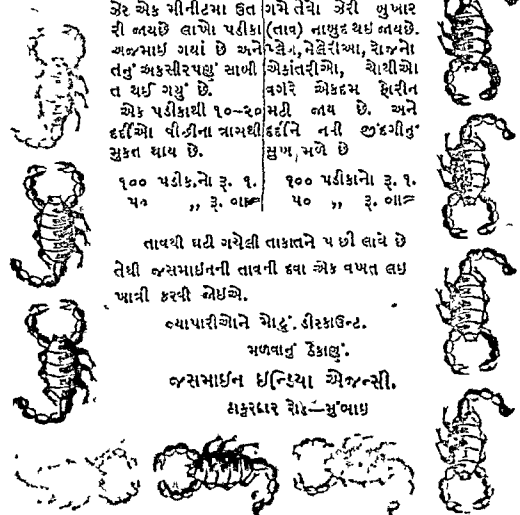 ઝેર એક મીનીટમાં ઉત
રી જાયછે લાખો પડીકા
અજમાઈ ગયાં છે અને
તેનું અકસીરપણું સાબી
ત થઈ ગયું છે.
એક પડીકાથી ૧૦-૨૦
દર્દીઓ વીંછીના ત્રાસથી
મુકત થાય છે.
૧૦૦ પડીકાનો રૂ. ૧.
૫૦ ,, રૂ. ૦ા=
ગમે તેવો ઝેરી બુખાર
(તાવ) નાબુદ થઈ જાયછે.
પ્લેગ, મેલેરીઆ, રોજનો
એકાંતરીઓ, ચોથીઓ
વગેરે એકદમ ફારીન
મટી જાય છે. અને
દર્દીને નવી જીંદગીનું
સુખ મળે છે
૧૦૦ પડીકાનો રૂ. ૧.
૫૦ ,, રૂ. ૦ા=
તાવથી ઘટી ગયેલી તાકાતને પાછી લાવે છે
તેથી જસમાઈનની તાવની દવા એક વખત લઇ
ખાત્રી કરવી જોઇએ.
વ્યાપારીઓને મોટું ડીસ્કાઉન્ટ.
મળવાનું ઠેકાણું.
જસમાઈન ઇન્ડિયા એજન્સી.
ઠાકુરદ્વાર રોડ—મુંબાઇ